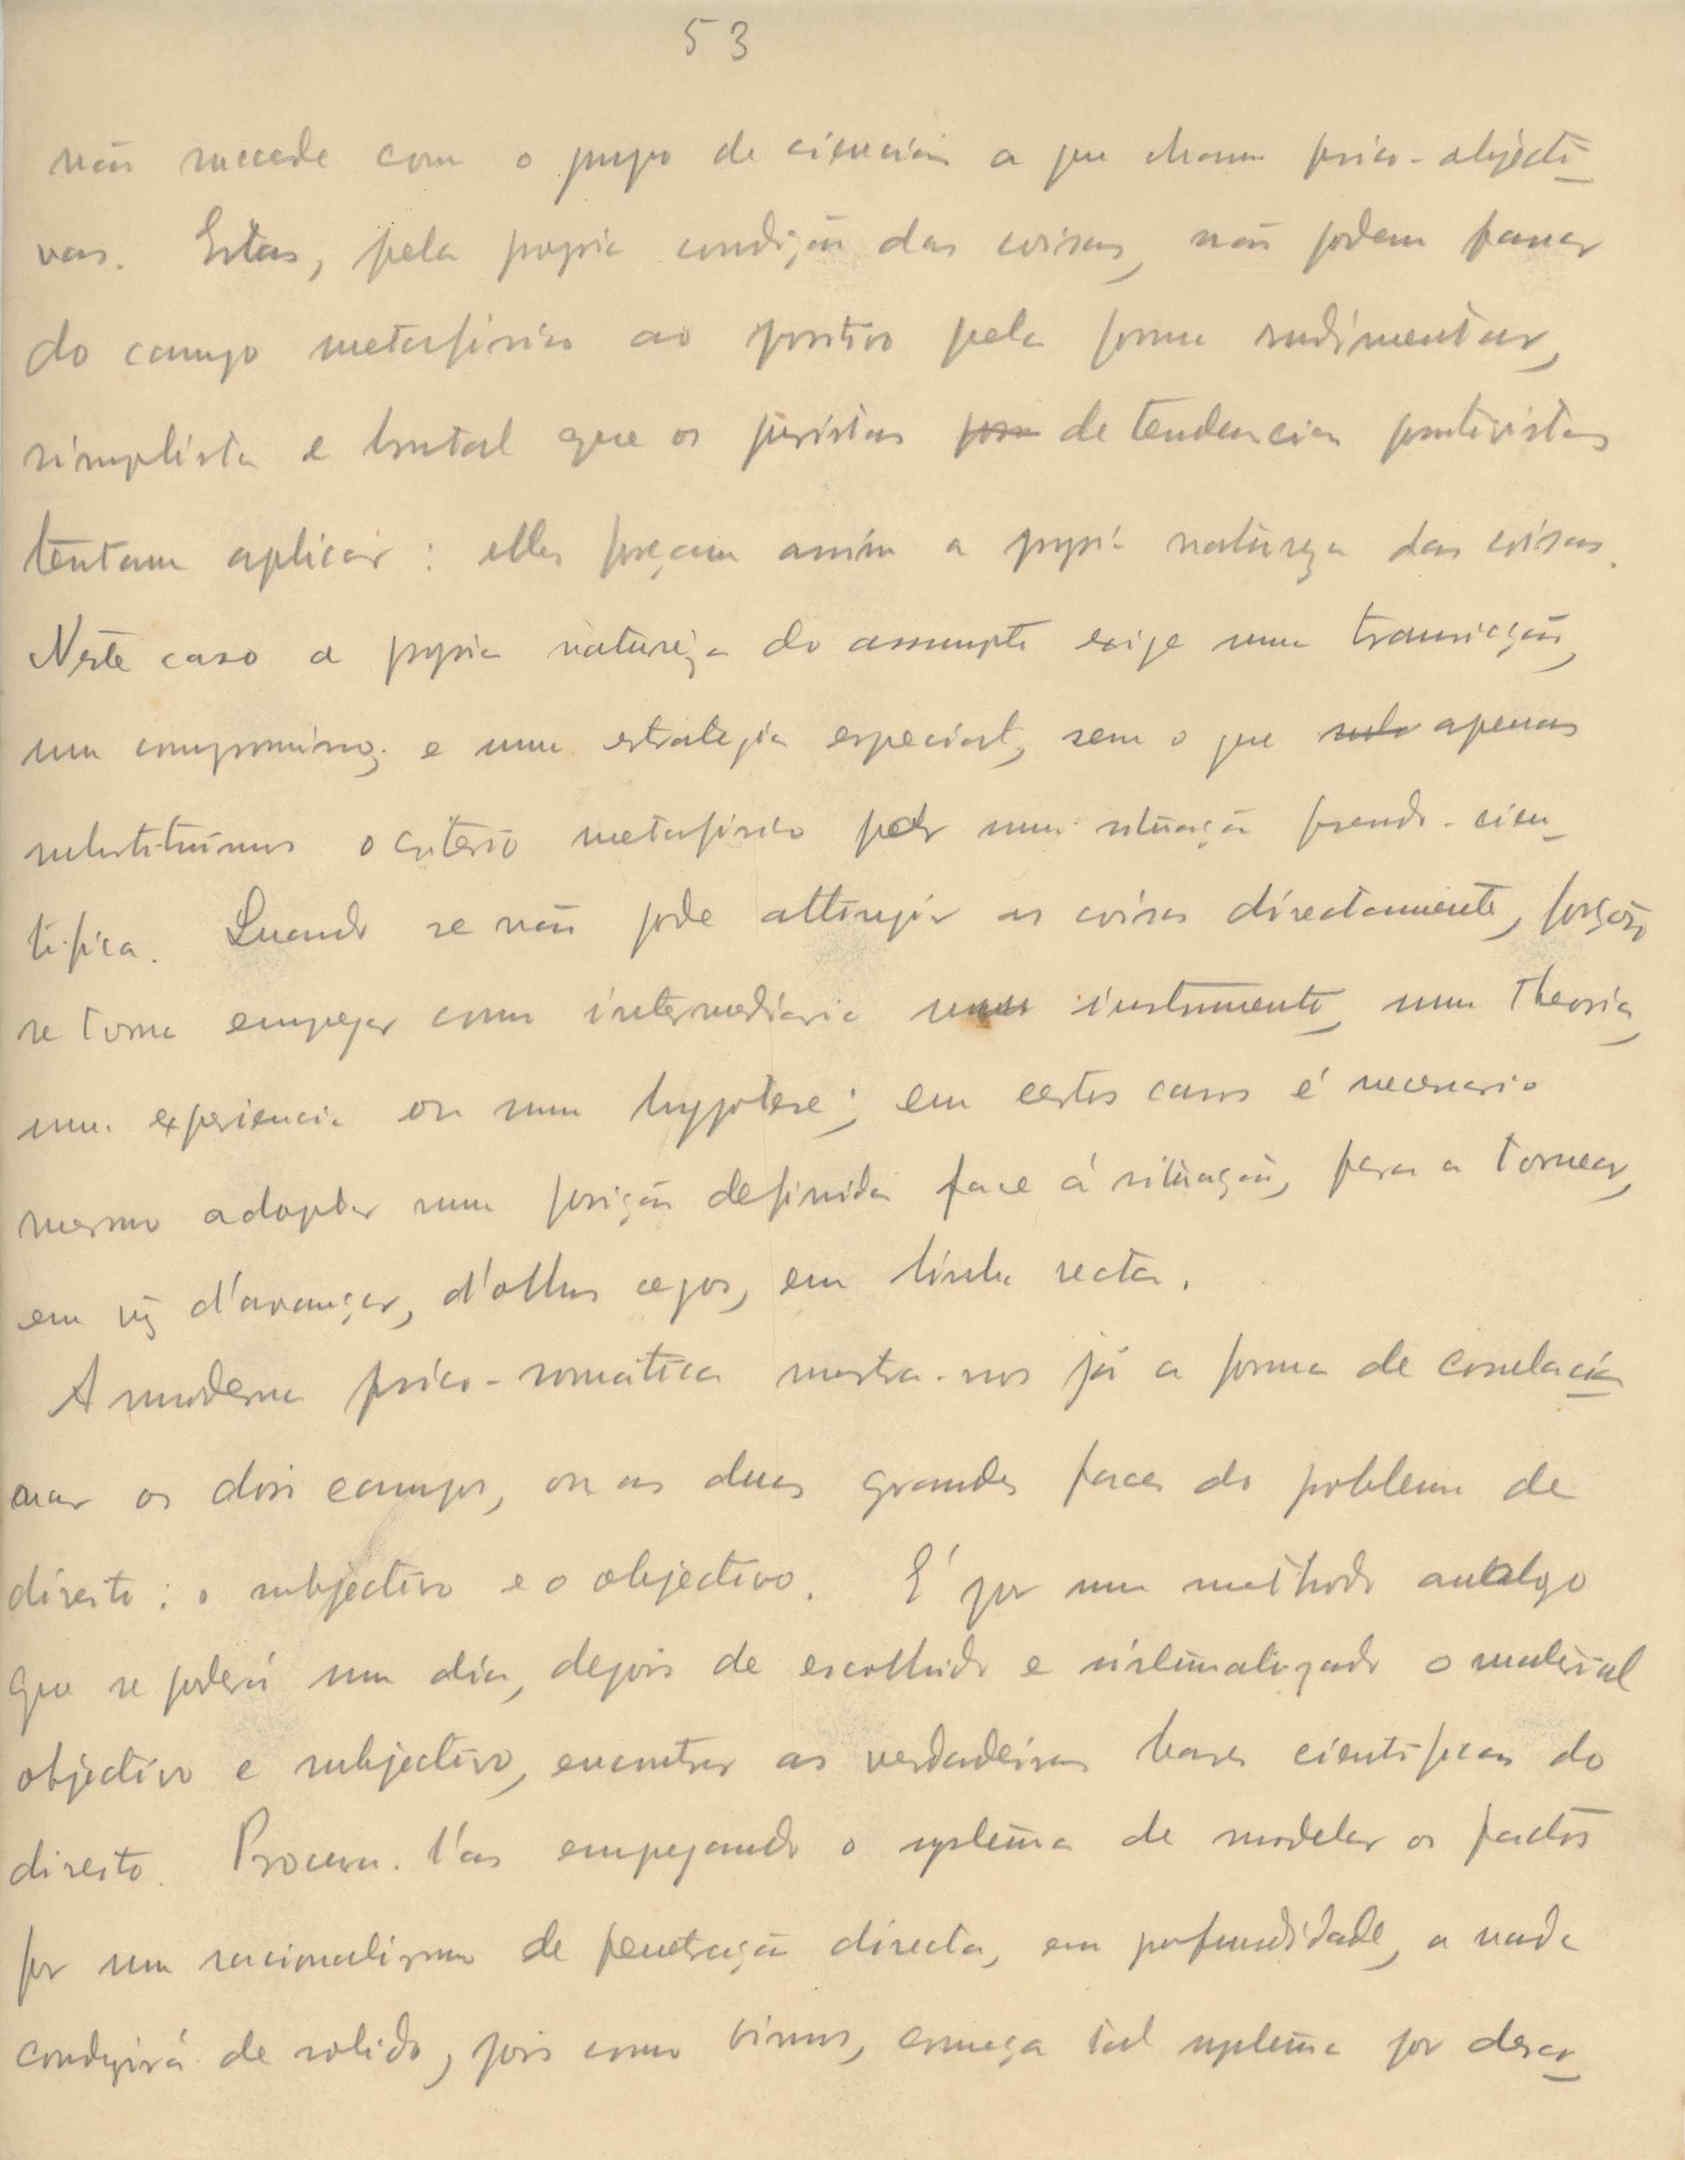 53
não succede com o grupo de ciencias a que chamo psico-objecti-
vas. Estas, pela propria condição das coisas, não podem passar
do campo metafisico ao positivo pela forma rudimentar,
simplista e brutal que os juristas para de tendencias positivistas
tentam aplicar: elles forçam assim a propria natureza das coisas.
Neste caso a propria natureza do assumpto exige uma transicção,
um compromisso, e uma estrategia especial, sem o que apenas
substituimos o criterio metafisico por uma situação pseudo-cien-
tifica. Quando se não pode attingir as coisas directamente, forçoso
se torna empregar como intermediario um instrumento, uma theoria,
uma experiencia ou uma hypotese; em certos casos é necessario
mesmo adoptar uma posição definida face á situação, para a tornear,
em vez d'avançar, d'olhos cegos, em linha recta.
A moderna psico-somática mostra-nos já a forma de correlacio-
nar os dois campos, ou as duas grandes faces do problema de
direito: o subjectivo e o objectivo. É por um methodo analogo
que se poderá um dia, depois de escolhido e sistematizado o material
objectivo e subjectivo, encontrar as verdadeiras bases cientificas do
direito. Procura-l'as empregando o systema de modelar os factos
por um racionalismo de penetração directa, em profundidade, a nada
conduzirá de solido, pois como vimos, começa tal systema por desar-